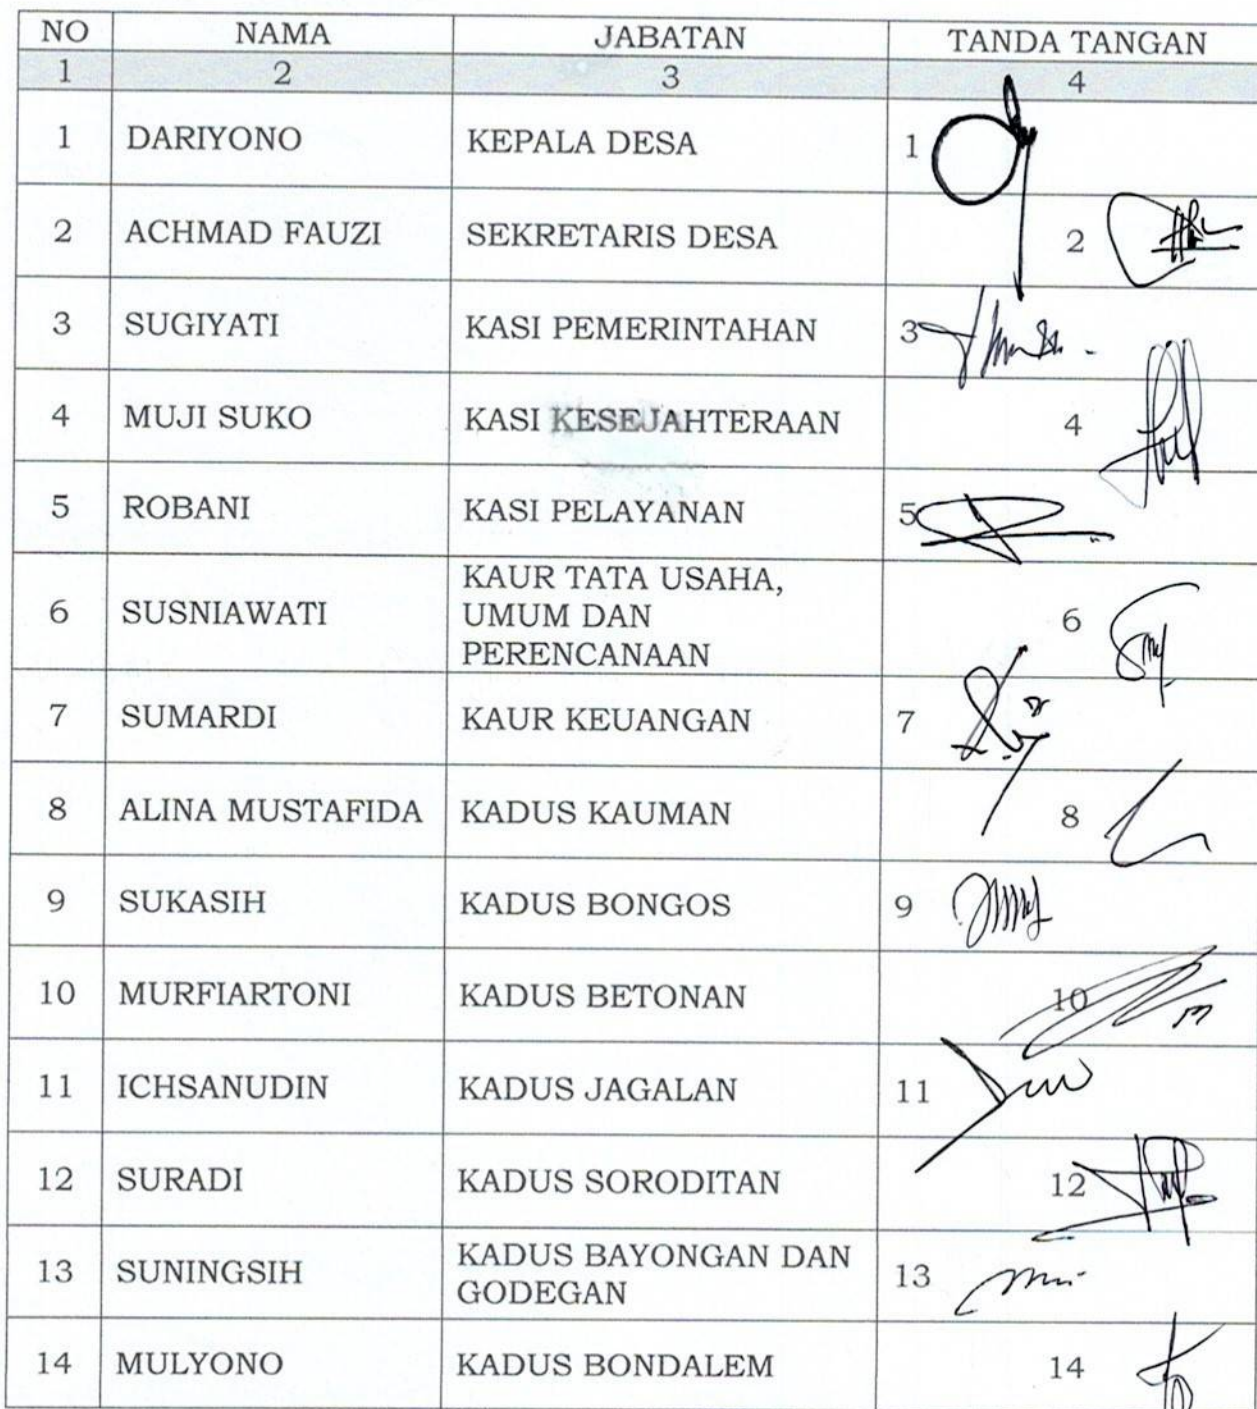 NO NAMA JABATAN TANDA TANGAN
1 2 3 4
1 DARIYONO KEPALA DESA 1
2 ACHMAD FAUZI SEKRETARIS DESA 2
3 SUGIYATI KASI PEMERINTAHAN 3
4 MUJI SUKO KASI KESEJAHTERAAN 4
5 ROBANI KASI PELAYANAN 5
6 SUSNIAWATI KAUR TATA USAHA,
UMUM DAN
PERENCANAAN 6
7 SUMARDI KAUR KEUANGAN 7
8 ALINA MUSTAFIDA KADUS KAUMAN 8
9 SUKASIH KADUS BONGOS 9
10 MURFIARTONI KADUS BETONAN 10
11 ICHSANUDIN KADUS JAGALAN 11
12 SURADI KADUS SORODITAN 12
13 SUNINGSIH KADUS BAYONGAN DAN
GODEGAN 13
14 MULYONO KADUS BONDALEM 14